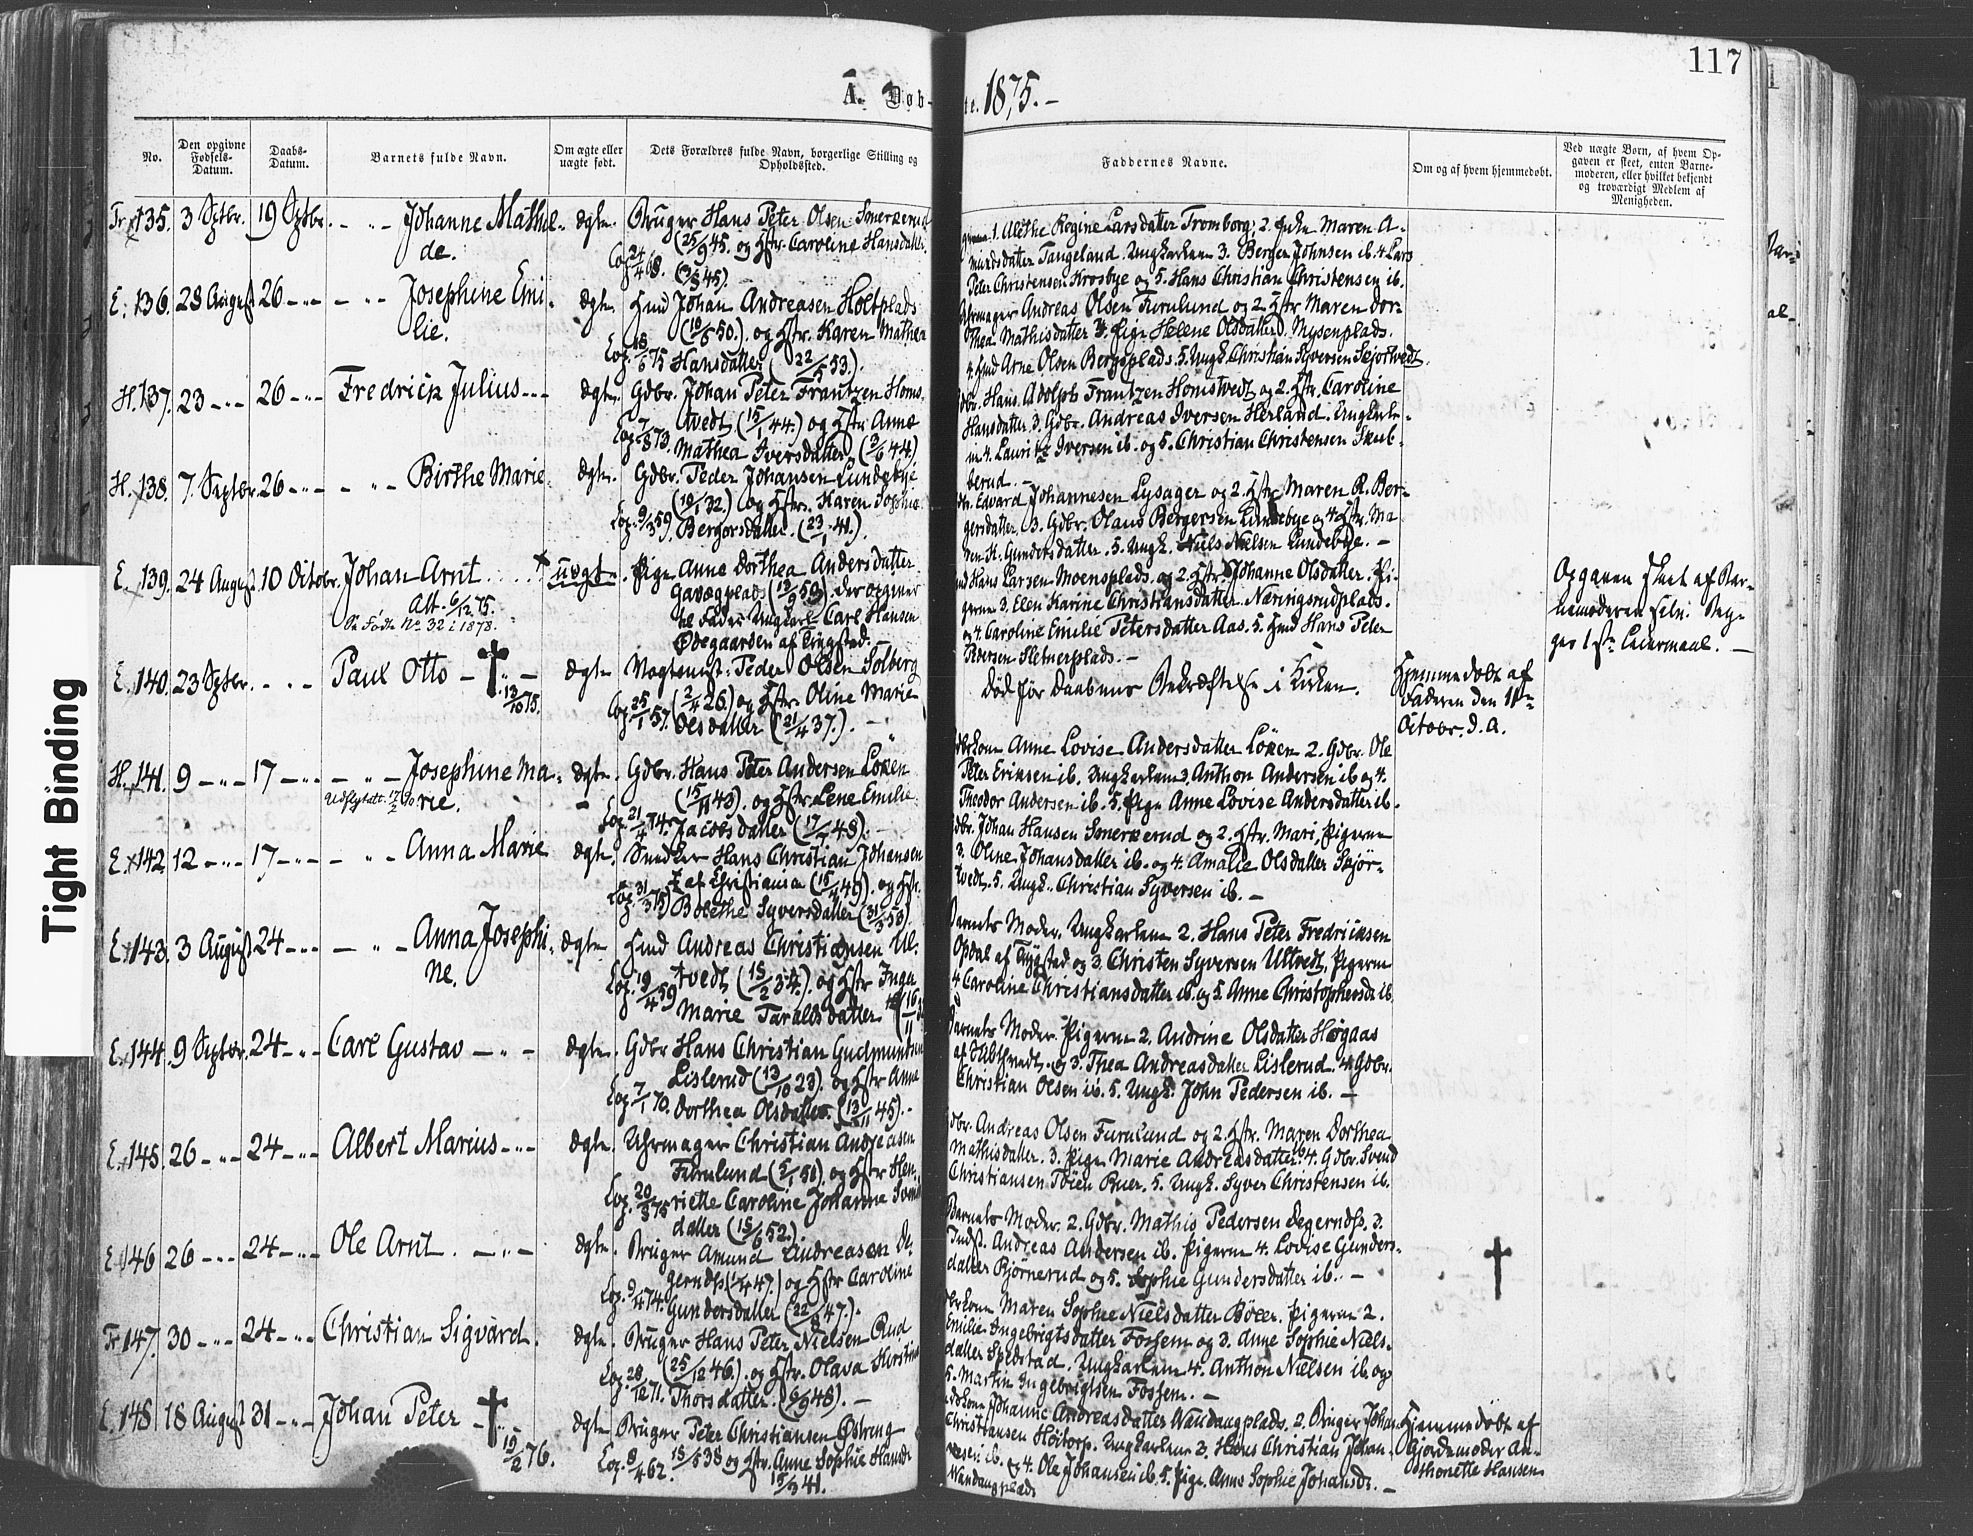 117
A. Døb-
te. 1875. -
No.
Den opgivne
Fødsels-
Datum.
Daabs-
Datum.
Barnets fulde Navn.
Om ægte eller
uægte født.
Dets Forældres fulde Navn, borgerlige Stilling og
Opholdssted.
Faddernes Navne.
Om og af hvem hjemmedøbt.
Ved uægte Børn, af hvem Op-
gaven er skeet, enten Barne-
moderen, eller hvilket bekjendt
og troværdigt Medlem af
Menigheden.
Tr. 135. 3 Septbr. 19 Septbr. Johanne Mathil-
de.
ægte. Bruger Hans Peter Olsen
(25/9 45. og Hstr. Caroline Hansdatter
Cop. 24/4 68. 45).
1. Alethe Regine Larsdatter Tromborg, 2. Maren A-
mundsdatter Tangeland. Ungkarlene 3. Bergen Johnsen ib. 4. Lars
Peter Christensen Krosbye og 5. Hans Christian Christensen ib.
E. 136. 28 August 26 Josephine Emi-
lie.
ægte. Hmd Johan Andreasen Holtplads
50.) og Hstr. Karen Mathea
Cop. 75 Hansdatter (22/5 53).
Andreas Olsen Furulund og 2. Hstr Maren Dor-
thea Mathisdatter 3. Pige Helene Olsdatter Mysenplads.
4. Hmd Arne Olsen Bergsplads. 5. Ungk. Christian Syversen Skjortvedt
H. 137. 23 26 Fredrick Julius
ægte. Gdbr. Johan Peter Frantzen Homs-
tvedt (15/1 44.) og Hstr Anne
Cop. 7/8 73. Mathea Iversdatter 44.)
Hans Adolph Frantzen Homstvedt og 2. Hstr. Caroline
Hansdatter. 3. Gdbr. Andreas Iversen Herland. Ungkarle-
ne 4. Lauritz Iversen ib. og 5. Christian Christensen Skub-
berud. -
H. 138. 7. Septbr. 26 Birthe Marie
ægte. Gdbr. Peder Johansen Lundebye
32.) og Hstr. Karen Sophie
Cop. 9/3 59. Bergersdatter. (23/1 41.).
Edvard Johannesen Lysager og 2. Hstr Maren R. Ber-
gersdatter. 3. Gdbr. Olaus Bergersen Lundebye og 4. Hstr. Ma-
ren H. Gundersdatter. 5. Ungk. Niels Nielsen Lundebye. -
E. 139. 24 August 10 Octobr. Johan Arnt
Alt. 6/12 75.
Se Fødte No. 32 i 1878.
uægte. Pige Anne Dorthea Andersdatter
der opgiver
til Fader Ungkarl Carl Hansen
Ødegaarden af Trygstad. -
Hans Larsen Moensplads og 2. Hstr. Johanne Olsdatter. Pi-
gerne 3. Elen Karine Christiansdatter Næringsrudplads.
og 4. Caroline Emilie Petersdatter Aas. 5. Hmd Hans Peter
Iversen Sletnerplads. -
Opgaven skeet af Bar-
nemoderen selv. Beg-
ges 1ste Leiermaal. -
E. 140. 23 Septbr. Paul Otto † 13/10 75.
ægte Peder Olsen Solberg
(2/4 26.) og Hstr. Oline Marie
Cop. 25/1 57. Olsdatter (21/4 37.).
Død før Daabens Bekræftelse i Kirken.
Hjemmedøbt af
Faderen den 11te
Octobr. d. A.
H. 141. 9 17 Josephine Ma-
rie.
Udflyttet.
ægte. Gdbr. Hans Peter Andersen Løken
43). og Hstr. Lene Emilie
Cop. 21/4 74. Jacobsdatter
Anne Lovise Andersdatter Løken 2. Gdbr. Ole
Peter Eriksen ib. Ungkarlene 3. Anthon Andersen ib og 4.
Theodor Andersen ib. 5. Pige Anne Lovise Andersdatter ib.
E. 142. 12 17 Anna Marie
ægte. Snedker Hans Christian Johansen
af Christiania og Hstr.
Cop. 31/3 75. Bolethe Syversdatter
Johan Hansen og 2. Hstr. Mari, Pigerne
3. Oline Johansdatter ib. og 4. Amalie Olsdatter Skjør-
tvedt. 5. Ungk. Christian Syversen ib. -
E. 143. 3 August 24 Anna Josephi-
ne.
ægte Hmd Andreas Christiansen Ul-
tvedt (18/2 34.). og Hstr Inga
Cop. 19/4 59 Marie Taraldsdatter
Barnets Moder. Ungkarlene 2. Hans Peter Fredriksen
Opdal af Trygstad og 3. Christen Syversen Ultvedt, Pigerne
4 Caroline Christiansdatter ib. og 5. Anne Christophersd. ib.
E. 144. 9 Septbr. 24 Carl Gustav
ægte. Gdbr Hans Christian Gudmundsen
Lislerud (13/10 23). og Hstr Anne
Cop. 7/1 70. Dorthea Olsdatter. (13/11 45). -
Barnets Moder. Pigerne 2. Andrine Olsdatter Høgaas
og 3. Thea Andreasdatter Lislerud. 4. Gdbr.
Christian Olsen ib. 5. Ungk. John Pedersen ib. -
E. 145. 26 24 Albert Marius
ægte. Uhrmager Christian Andreasen
Furulund 50) og Hstr Hen-
Cop. 20/3 75 riette Caroline Johanne Svends-
datter (15/6 52.).
Gdbr. Andreas Olsen Furulund og 2. Hstr. Maren Dorthea
Mathisdatter. 3. Pige Marie Andreasdatter. 4. Gdbr. Svend
Christiansen Töien Ruer. 5. Ungk. Syver Christensen ib.
E. 146 26 24 Ole Arnt.
ægte. Bruger Amund Andreasen De-
gernds. 47.) og Hstr Caroline
Cop. 9/4 74. Gundersdatter (22/8 47.).
Barnets Moder. 2. Gdbr. Mathis Pedersen Degernds. 3.
Indst. Andreas Andersen ib. Pigerne 4. Lovise Gunders-
datter Bjørnerud og 5. Sophie Gundersdatter ib. -
†
Tr. 147. 30 24 Christian Sigvard.
ægte. Bruger Hans Peter Nielsen Rud
(25/12 46.). og Hstr. Olava Kirstine
Cop. 28/12 71. Thorsdatter. 48). -
Maren Sophie Nielsdatter Böler. Pigerne 2.
Emilie Ingebrigtsdatter Fossem og 3. Anne Sophie Niels-
datter Ungkarlene 4. Anthon Nielsen ib. og
5. Martin Ingebrigtsen Fossem. -
E. 148. 18 August 31 Johan Peter † 19/2 76.
ægte. Bruger Peter Christiansen Østreng
Cop. 8/4 62. 38 og Hstr. Anne Sophie Hansdr
41.
Johanne Andreasdatter Vandaugplads. 2. Bruger Johan
Christiansen Høitorp. Ungkarlene 3. Hans Christian Johan-
nesen ib. og 4. Ole Johansen ib. 5. Pige. Anne Sophie Johansdr. -
Vandaugplads
Hjemmedøbt af
Gjordemoder An-
thonette Hansen
Tight Binding